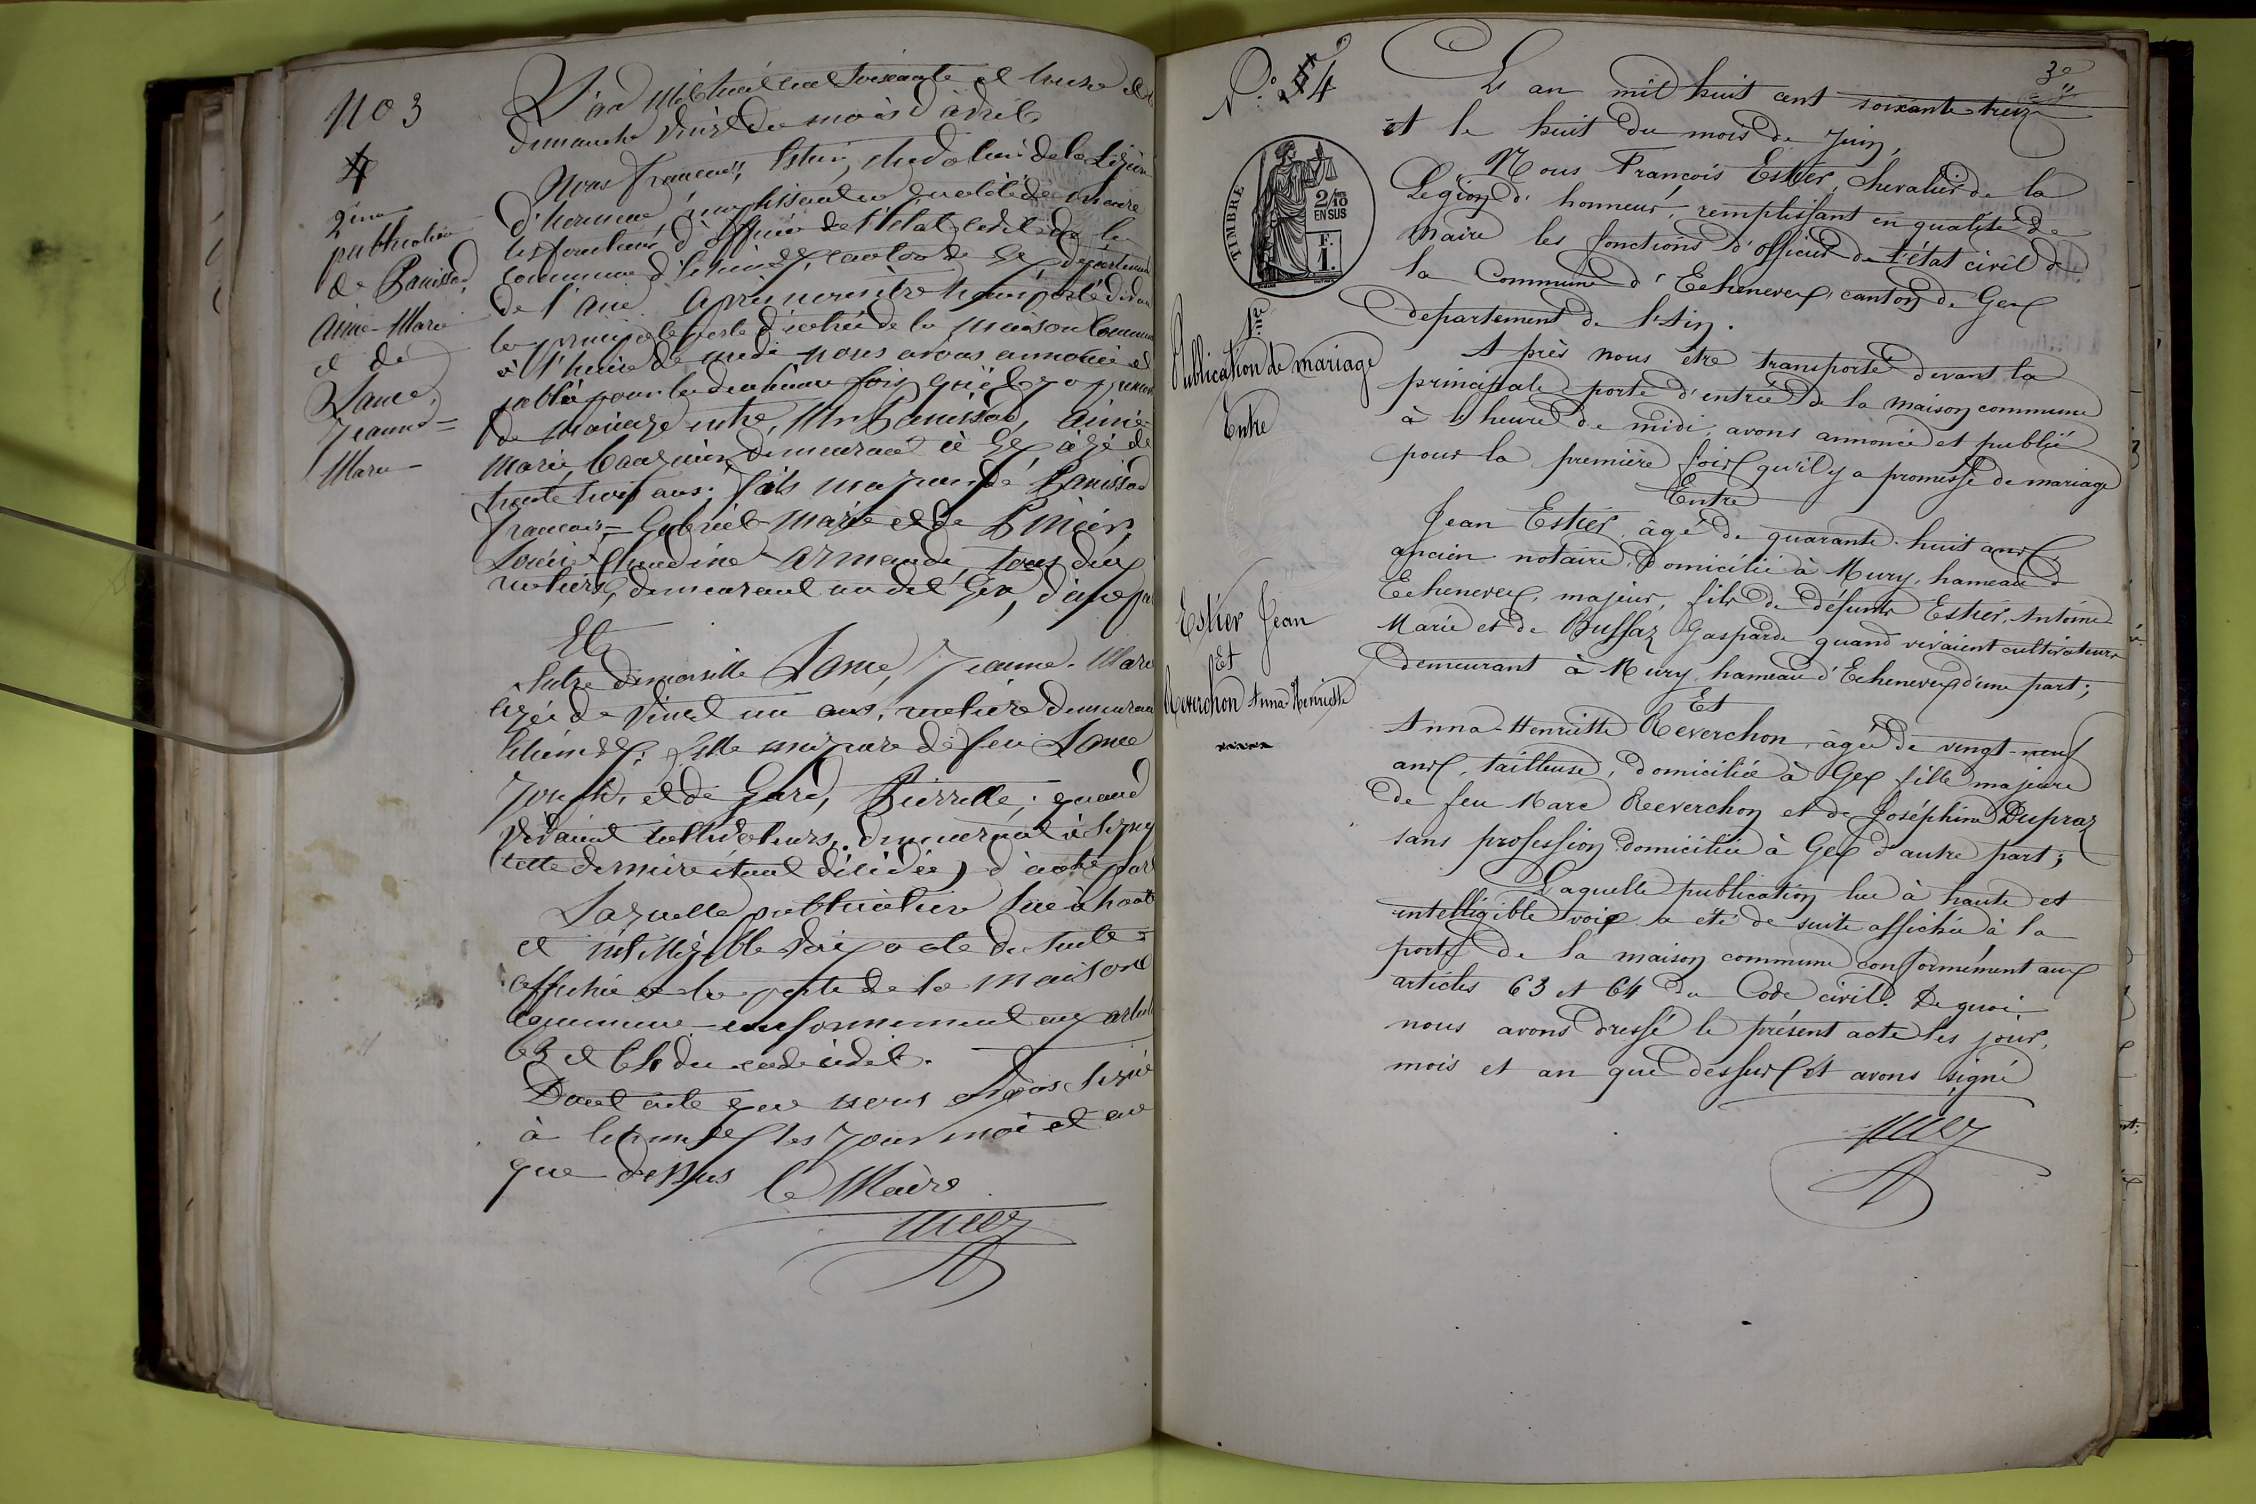 No 3
2ème
publication
de Panissod
Aimé-Marie
et de
Lance,
Jeanne=
Marie
L'an mil huit cent soixante et treize et le
dimanche vingt du mois d'avril
Nous François, Estier, chevalier de la Légion
d'honneur, remplissant en qualité de maire
les fonctions d'officier de l'état civil de la
commune d'Echenevex, canton de Gex, département
de l'Ain. Après nous être transporté devant
la principale porte d'entrée de la maison commune
à l'heure de midi nous avons annoncé et
publié pour la deuxième fois qu'il y a promesse
de mariage entre, Mr Panissod, Aimé=
Marie, demeurant à Gex âgé de
trente trois ans; fils majeur de Panissod
François=Gabriel Marie et de
Claudine Armande, tous deux
rentiers, demeurant au dit Gex, d'une part
Et
Entre demoiselle Lance, Jeanne-Marie
âgée de vingt un ans, rentière demeurant
Echenevex; fille majeure de feu Lance
Joseph, et de Gard, Pierrette; quand
vivaient cultivateurs, demeurant à Segny
(cette dernière étant décédée) d'autre part
Laquelle publication lue à haute
et intelligible voix a été de suite
affichée à la porte de la maison
commune conformément aux articles
63 et 64 du code civil.
Dont acte que nous avons signé
à Echenevex les jour moi et an
que dessus le Maire
N° 4
3e
TIMBRE
2/10
EN SUS
F.
1.
1ère
Publication de mariage
Entre
Estier Jean
Et
Reverchon Anna Henriette
L'an mil huit cent soixante treize
et le huit du mois de Juin,
Nous François Estier, Chevalier de la
Légion d'honneur, remplissant en qualité de
Maire les fonctions d'officier de l'état civil de
la Commune d'Echenevex, canton de Gex
département de l'Ain.
Après nous être transporté devant la
principale porte d'entrée de la maison commune
à l'heure de midi, avons annoncé et publié
pour la première fois qu'il y a promesse de mariage
Entre
Jean Estier, âgé de quarante-huit ans,
ancien notaire, domicilié à Mury, hameau d'
Echenevex, majeur, fils de défunts Estier, Antoine
Marie et de Buffaz Gasparde quand vivaient cultivateurs
demeurant à Mury, hameau d'Echenevex d'une part;
Et
Anna-Henriette Reverchon, âgée de vingt-neuf
ans, tailleuse, domiciliée à Gex fille majeure
de feu Marc Reverchon et de Joséphine Dupraz
sans profession domiciliée à Gex d'autre part;
Laquelle publication lue à haute et
intelligible voix a été de suite affichée à la
porte de la maison commune conformément aux
articles 63 et 64 du Code civil. De quoi
nous avons dressé le présent acte les jour,
mois et an que dessus et avons signé